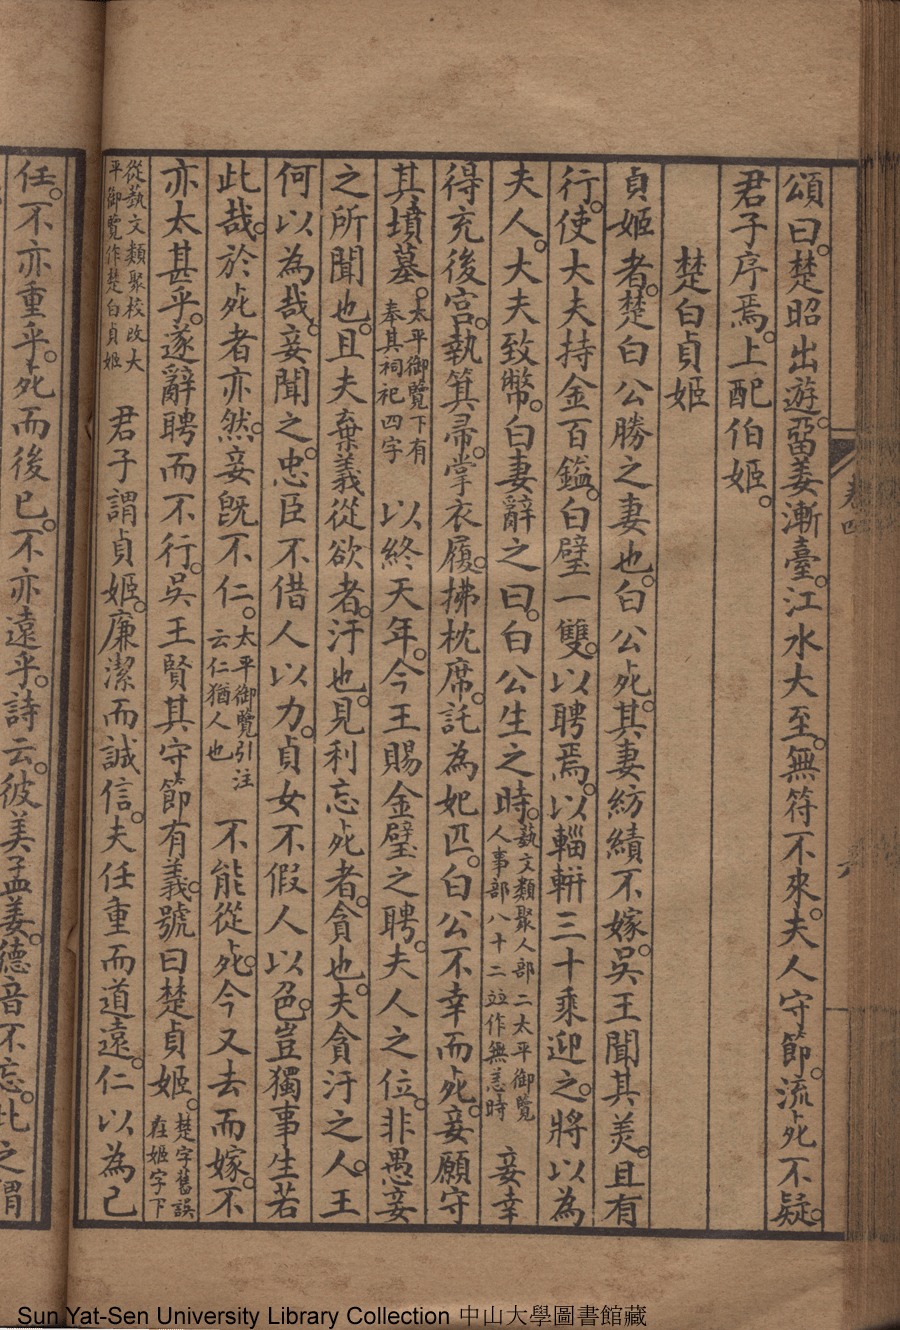 頌曰。楚昭出遊。畱姜漸臺。江水大至。無符不來。夫人守節。流死不疑。
君子序焉。上配伯姬。
楚白貞姬
貞姬者。楚白公勝之妻也。白公死。其妻紡績不嫁。吳王聞其美。且有
行。使大夫持金百鎰。白璧一雙。以聘焉。以輜軿三十乘迎之。將以為
夫人。大夫致幣。白妻辭之曰。白公生之時。埶文類聚人部二太平御覽人事部八十二竝作無恙時 妾幸
得充後宮。執箕帚。掌衣履。拂枕席。託為妃匹。白公不幸而死。妾願守
其墳墓。太平御覽下有奉其祠祀四字 以終天年。今王賜金璧之聘。夫人之位。非愚妾
之所聞也。且夫棄義從欲者。汙也。見利忘死者。貪也。夫貪汙之人。王
何以為哉。妾聞之。忠臣不借人以力。貞女不假人以色。豈獨事生若
此哉。於死者亦然。妾既不仁。太平御覽引注云仁猶人也 不能從死。今又去而嫁。不
亦太甚乎。遂辭聘而不行。吳王賢其守節有義。號曰楚貞姬。楚字舊誤在姬字下
從埶文類聚校改大平御覽作楚白貞姬 君子謂貞姬。廉潔而誠信。夫任重而道遠。仁以為己
任。不亦重乎。死而後已。不亦遠乎。詩云。彼美孟姜。德音不忘。此之謂
卷四
Sun Yat-Sen University Library Collection 中山大學圖書館藏